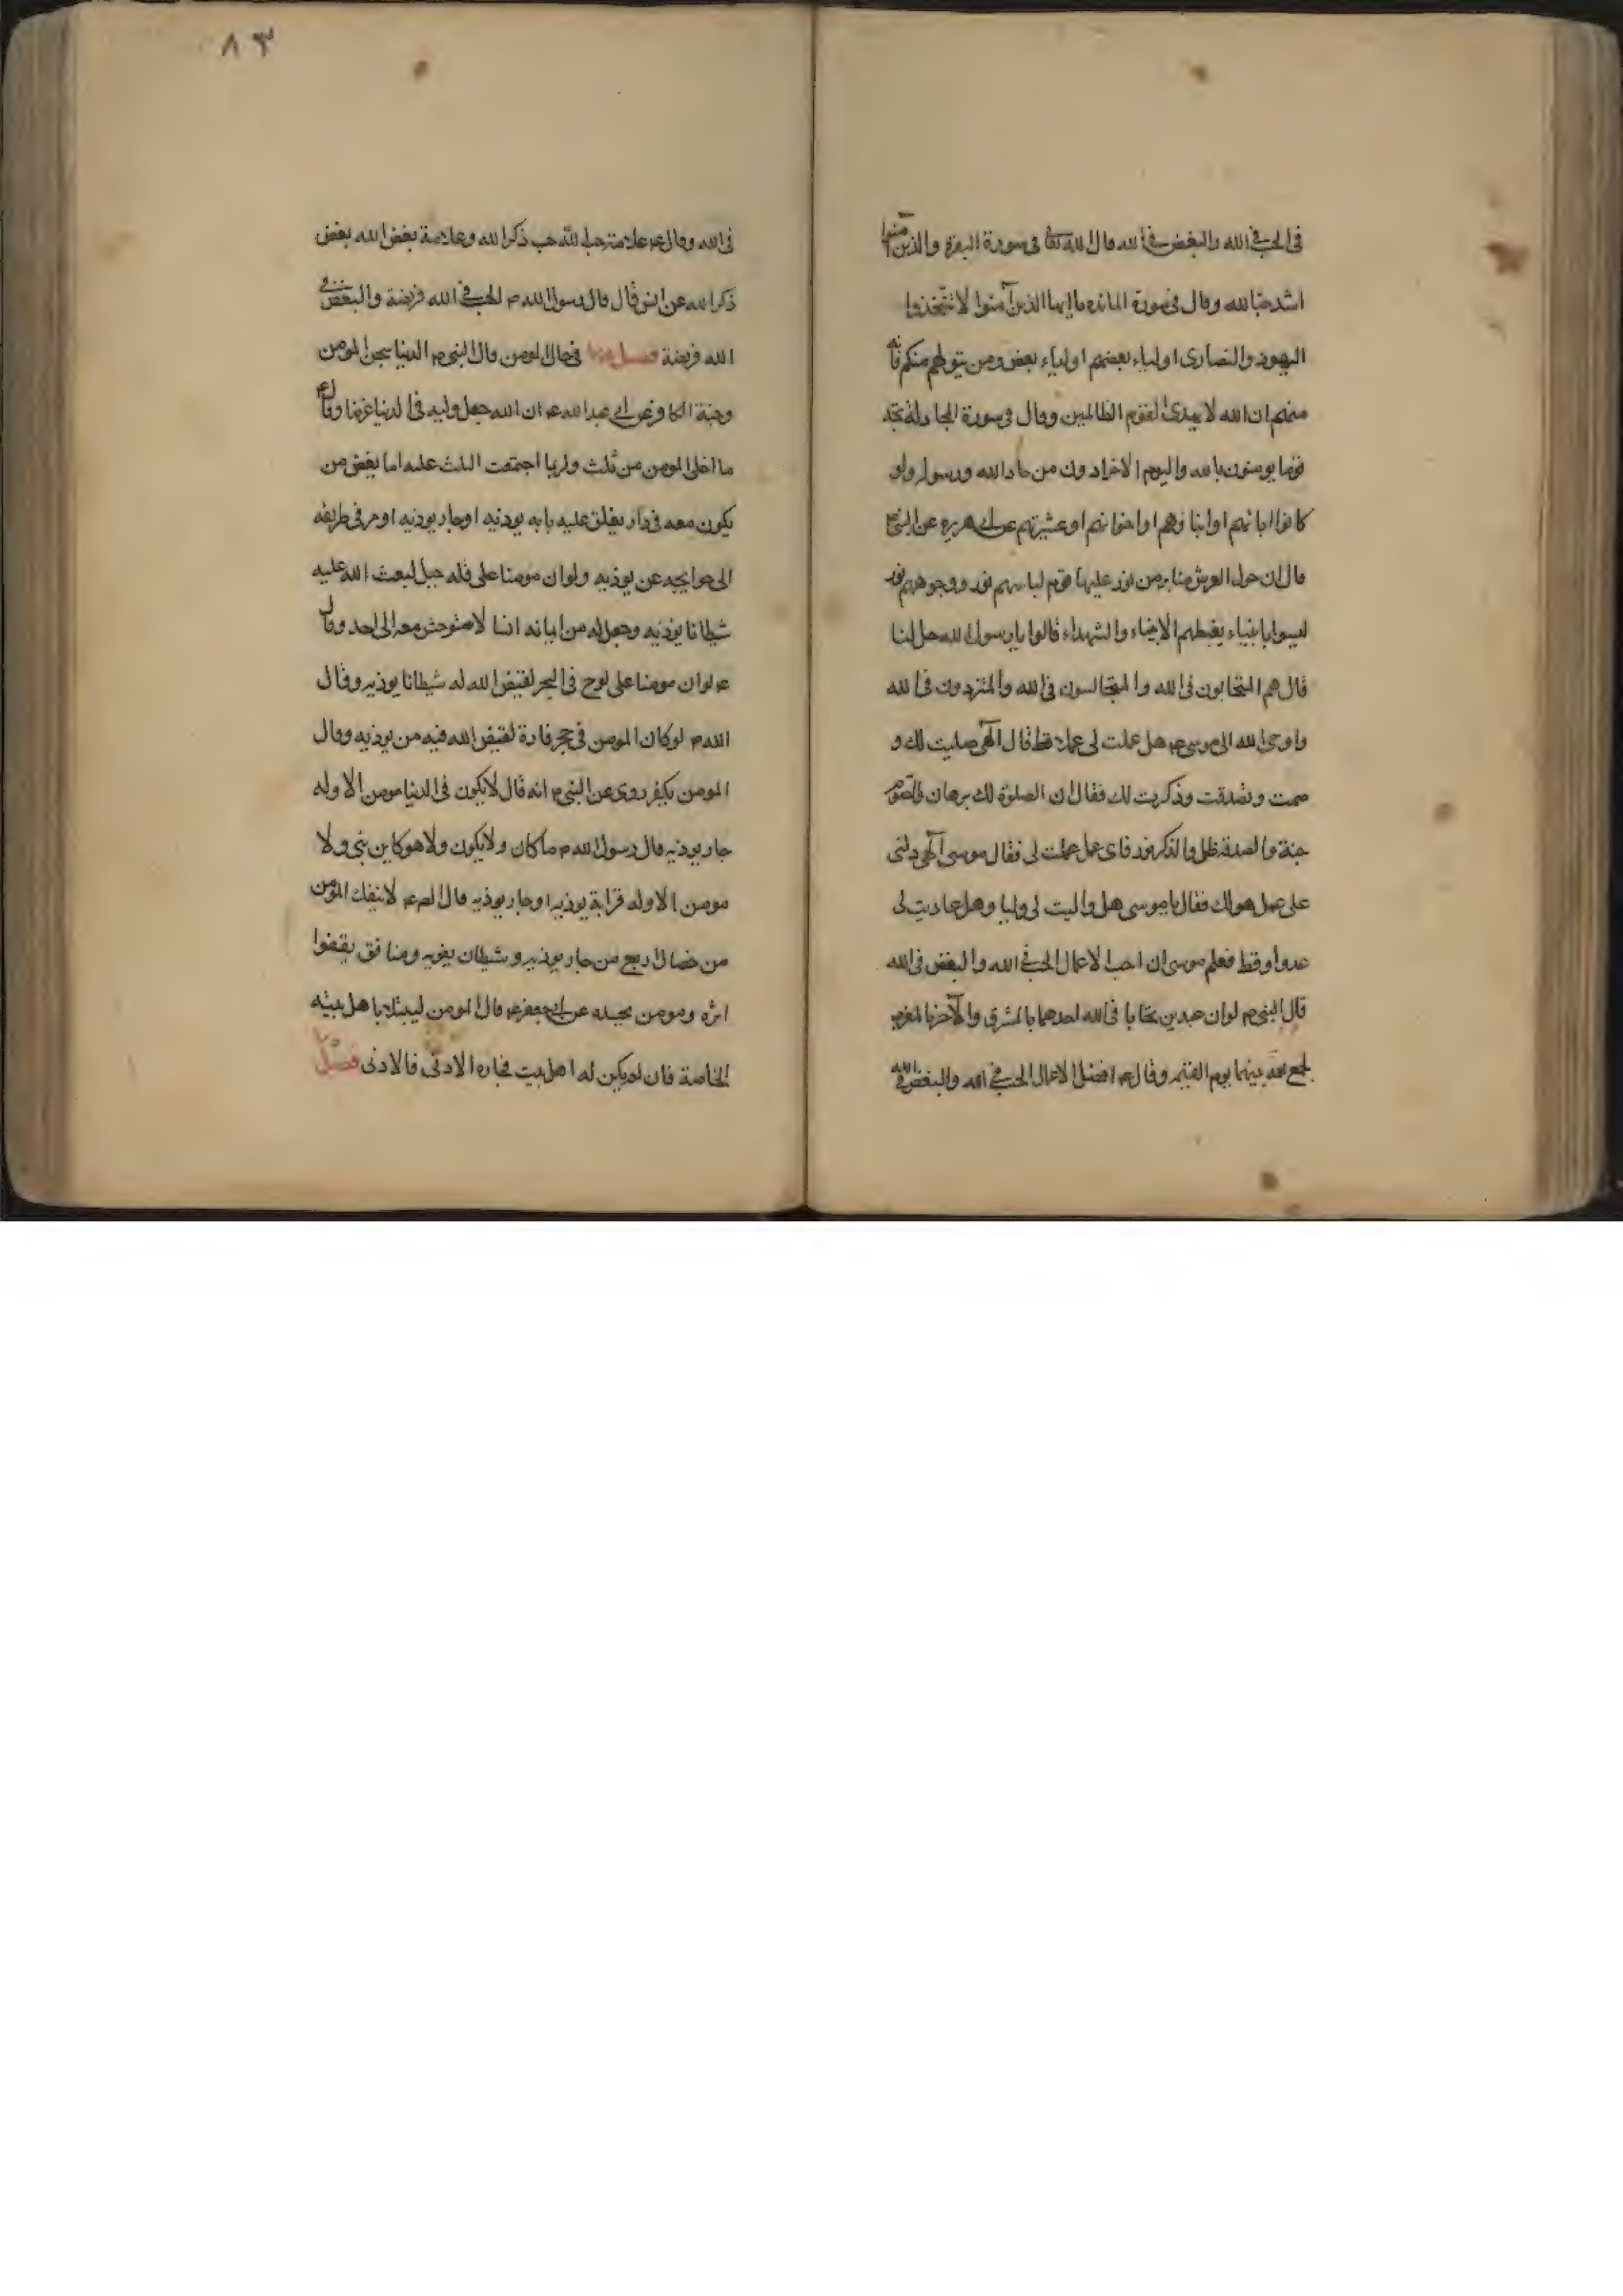 فی الحب فی الله والبغض فی الله قال الله تعا فی سورة البقرة والذین آمنوا
اشد حبا لله وقال فی سورة المائده یا ایها الذین آمنوا لا تتخذوا
الیهود والنصاری اولیاء بعضهم اولیاء بعض ومن یتولهم منکم فانه
منهم ان الله لا یهدی القوم الظالمین وقال فی سورة المجادلة تجد
قوما یومنون بالله والیوم الاخر یوادون من حاد الله ورسوله ولو
کانوا ابائهم او ابناؤهم او اخوانهم او عشیرتهم عن ابی هریره عن النبی م
قال ان حول العرش منابر من نور علیها قوم لباسهم نور ووجوههم نور
لیسوا بانبیاء یغبطهم الانبیاء والشهداء قالوا یا رسول الله حل لنا
قال هم المتحابون فی الله والمتجالسون فی الله والمتزورون فی الله
واوحی الله الی موسی ع هل عملت لی عملا قط قال الهی صلیت لک و
صمت وتصدقت وذکرت لک فقال ان الصلوة لک برهان والصوم
جنة والصدقة ظل والذکر نور فای عمل عملت لی فقال موسی الهی دلنی
علی عمل هو لک فقال یا موسی هل والیت لی ولیا وهل عادیت لی
عدوا وقط فعلم موسی ان احب الاعمال الحب فی الله والبغض فی الله
قال النبی م لو ان عبدین تحابا فی الله احدهما بالمشرق والآخر بالمغرب
لجمع الله بینهما یوم القیمه وقال ع افضل الاعمال الحب فی الله والبغض فی الله
٨٣
فی الله وقال ع علامة حب الله حب ذکر الله وعلامة بغض الله بغض
ذکر الله عن انس قال قال رسول الله م الحب فی الله فریضة والبغض فی
الله فریضة فصل فی حال المومن قال النبی م الدنیا سجن المومن
وجنة الکافر عن ابی عبد الله ع ان الله جعل ولیه فی الدنیا غرضا وقال ع
ما اخلی المومن من ثلث ولربما اجتمعت الثلث علیه اما بغض من
یکون معه فی دار یغلق علیه بابه یوذیه او جار یوذیه او من فی طریقه
الی حوایجه عن یوذیه ولو ان مومنا علی قله جبل لبعث الله علیه
شیطانا یوذیه وجعل له من ایمانه انسا لا یستوحش معه الی احد وقال
ع لو ان مومنا علی لوح فی البحر لقیض الله له شیطانا یوذیه وقال
الله م لو کان المومن فی حجر فارة لقیض الله فیه من یوذیه وقال
المومن یکفر روی عن النبی م انه قال لا یکون فی الدنیا مومن الا وله
جار یوذیه قال رسول الله م ما کان ولا یکون ولا هو کاین نبی ولا
مومن الا وله قرابة یوذیه او جار یوذیه قال الص ع لا ینفک المؤمن
من خصال اربع من جار یوذیه وشیطان یغویه ومنافق یقفوا
اثره ومومن یحسده عن ابی جعفر ع قال المومن لیبتلا باهل بیته
الخاصة فان لم یکن له اهل بیت فجاره الادنی فالادنی فصل